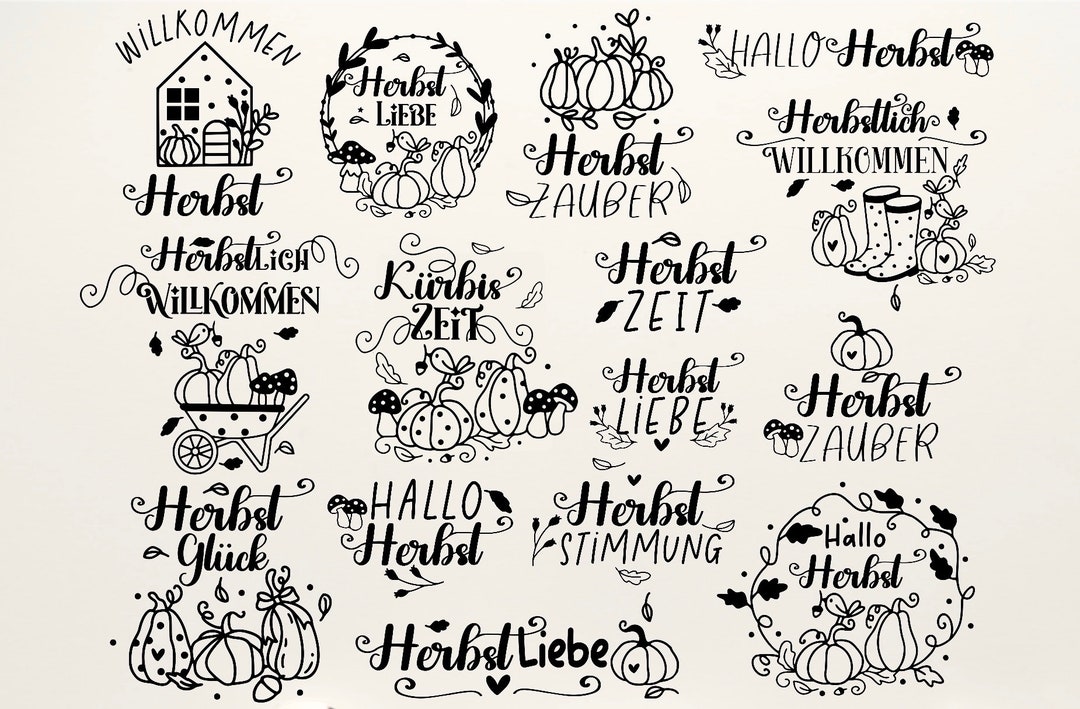 WILLKOMMEN
Herbst
Herbst
LIEBE
Herbst
ZAUBER
HALLO Herbst
Herbstlich
WILLKOMMEN
HerbstLiCH
WiLLKOMMEN
Kürbis
ZEiT
Herbst
ZEIT
Herbst
LiEBE
Herbst
ZAUBER
Herbst
Glück
HALLO
Herbst
Herbst
STiMMUNG
Hallo
Herbst
Herbst Liebe